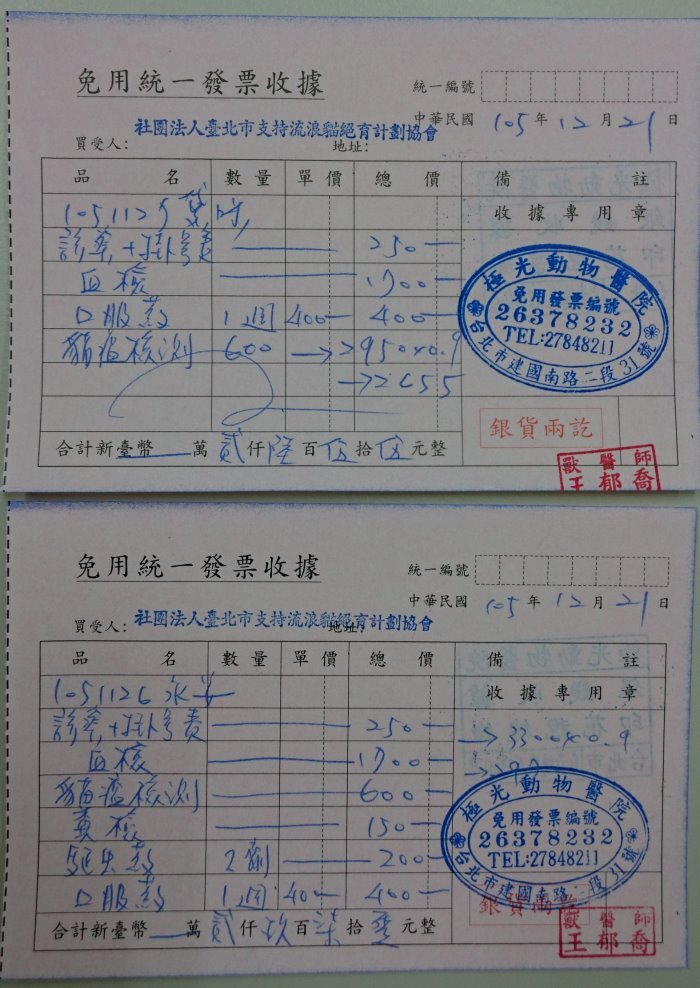 免用統一發票收據
統一編號
中華民國 105 年 12 月 21 日
社團法人臺北市支持流浪貓絕育計劃協會
買受人: 地址:
品 名 數 量 單 價 總 價 備 註
1051125 收據專用章
診察+掛号費 250
血檢 1700
口服藥 1週 400 400
貓瘟檢測 600 →2950×0.9
→2655
極光動物醫院
免用發票編號
26378232
TEL:27848211
台北市建國南路二段31號
銀貨兩訖
合計新臺幣 萬 貳 仟 陸 百 伍 拾 伍 元整
獸醫師
王郁喬
免用統一發票收據
統一編號
中華民國 105 年 12 月 21 日
社團法人臺北市支持流浪貓絕育計劃協會
買受人: 地址:
品 名 數 量 單 價 總 價 備 註
1051126 收據專用章
診察+掛号費 250 →3300×0.9
血檢 1700
貓瘟檢測 600
糞檢 150
驅虫藥 2劑 200
口服藥 1週 400 400
極光動物醫院
免用發票編號
26378232
TEL:27848211
台北市建國南路二段31號
銀貨兩訖
合計新臺幣 萬 貳 仟 玖 百 柒 拾 零 元整
獸醫師
王郁喬